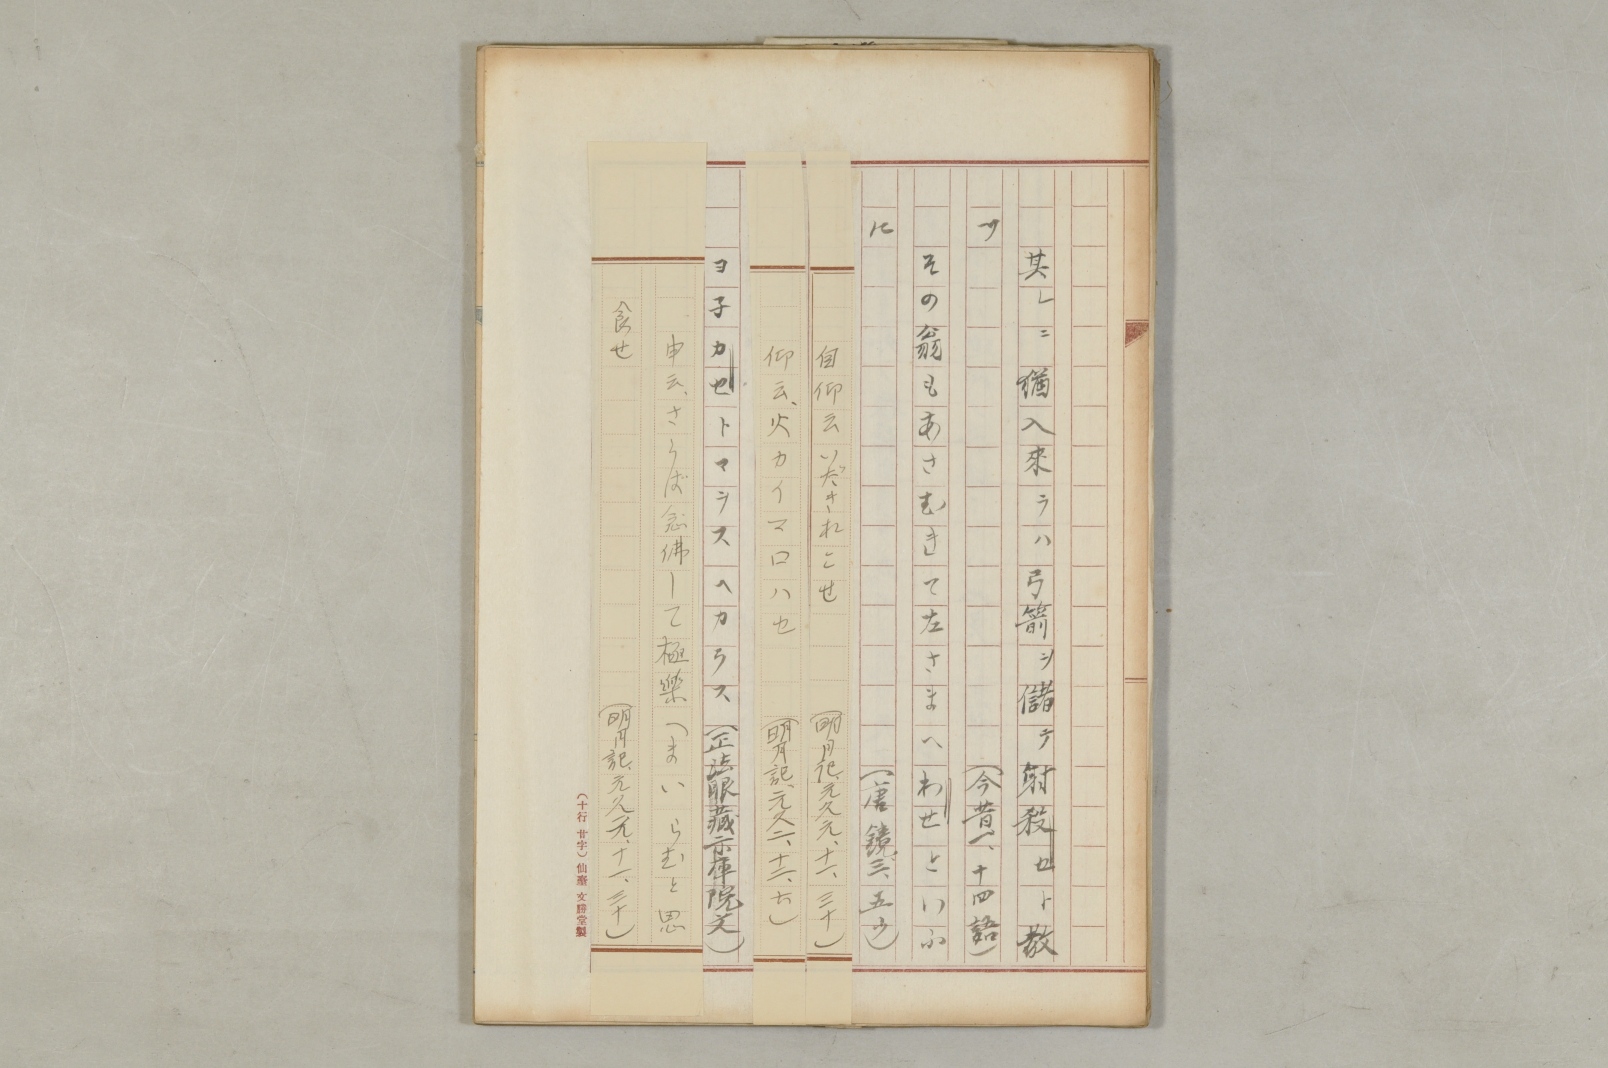 其レニ猶入來ラハ弓箭ヲ儲テ射殺セト教
ヅ
(今昔一、十四語)
その翁もあさむきて左さまへわせといふ
に
(唐鏡三、五ウ)
自仰云いださればこせ
(明月記、元久元、十一、三十)
仰云、火カイマロハセ
(明月記、元久二、十二、六)
ヨ子カ也トマラスヘカラス(正法眼藏示庫院文)
申云、さらば念佛して極樂へまいらむと思
食せ
(明月記、元久元、十一、三十)
(十行 廿字) 仙臺 文勝堂製